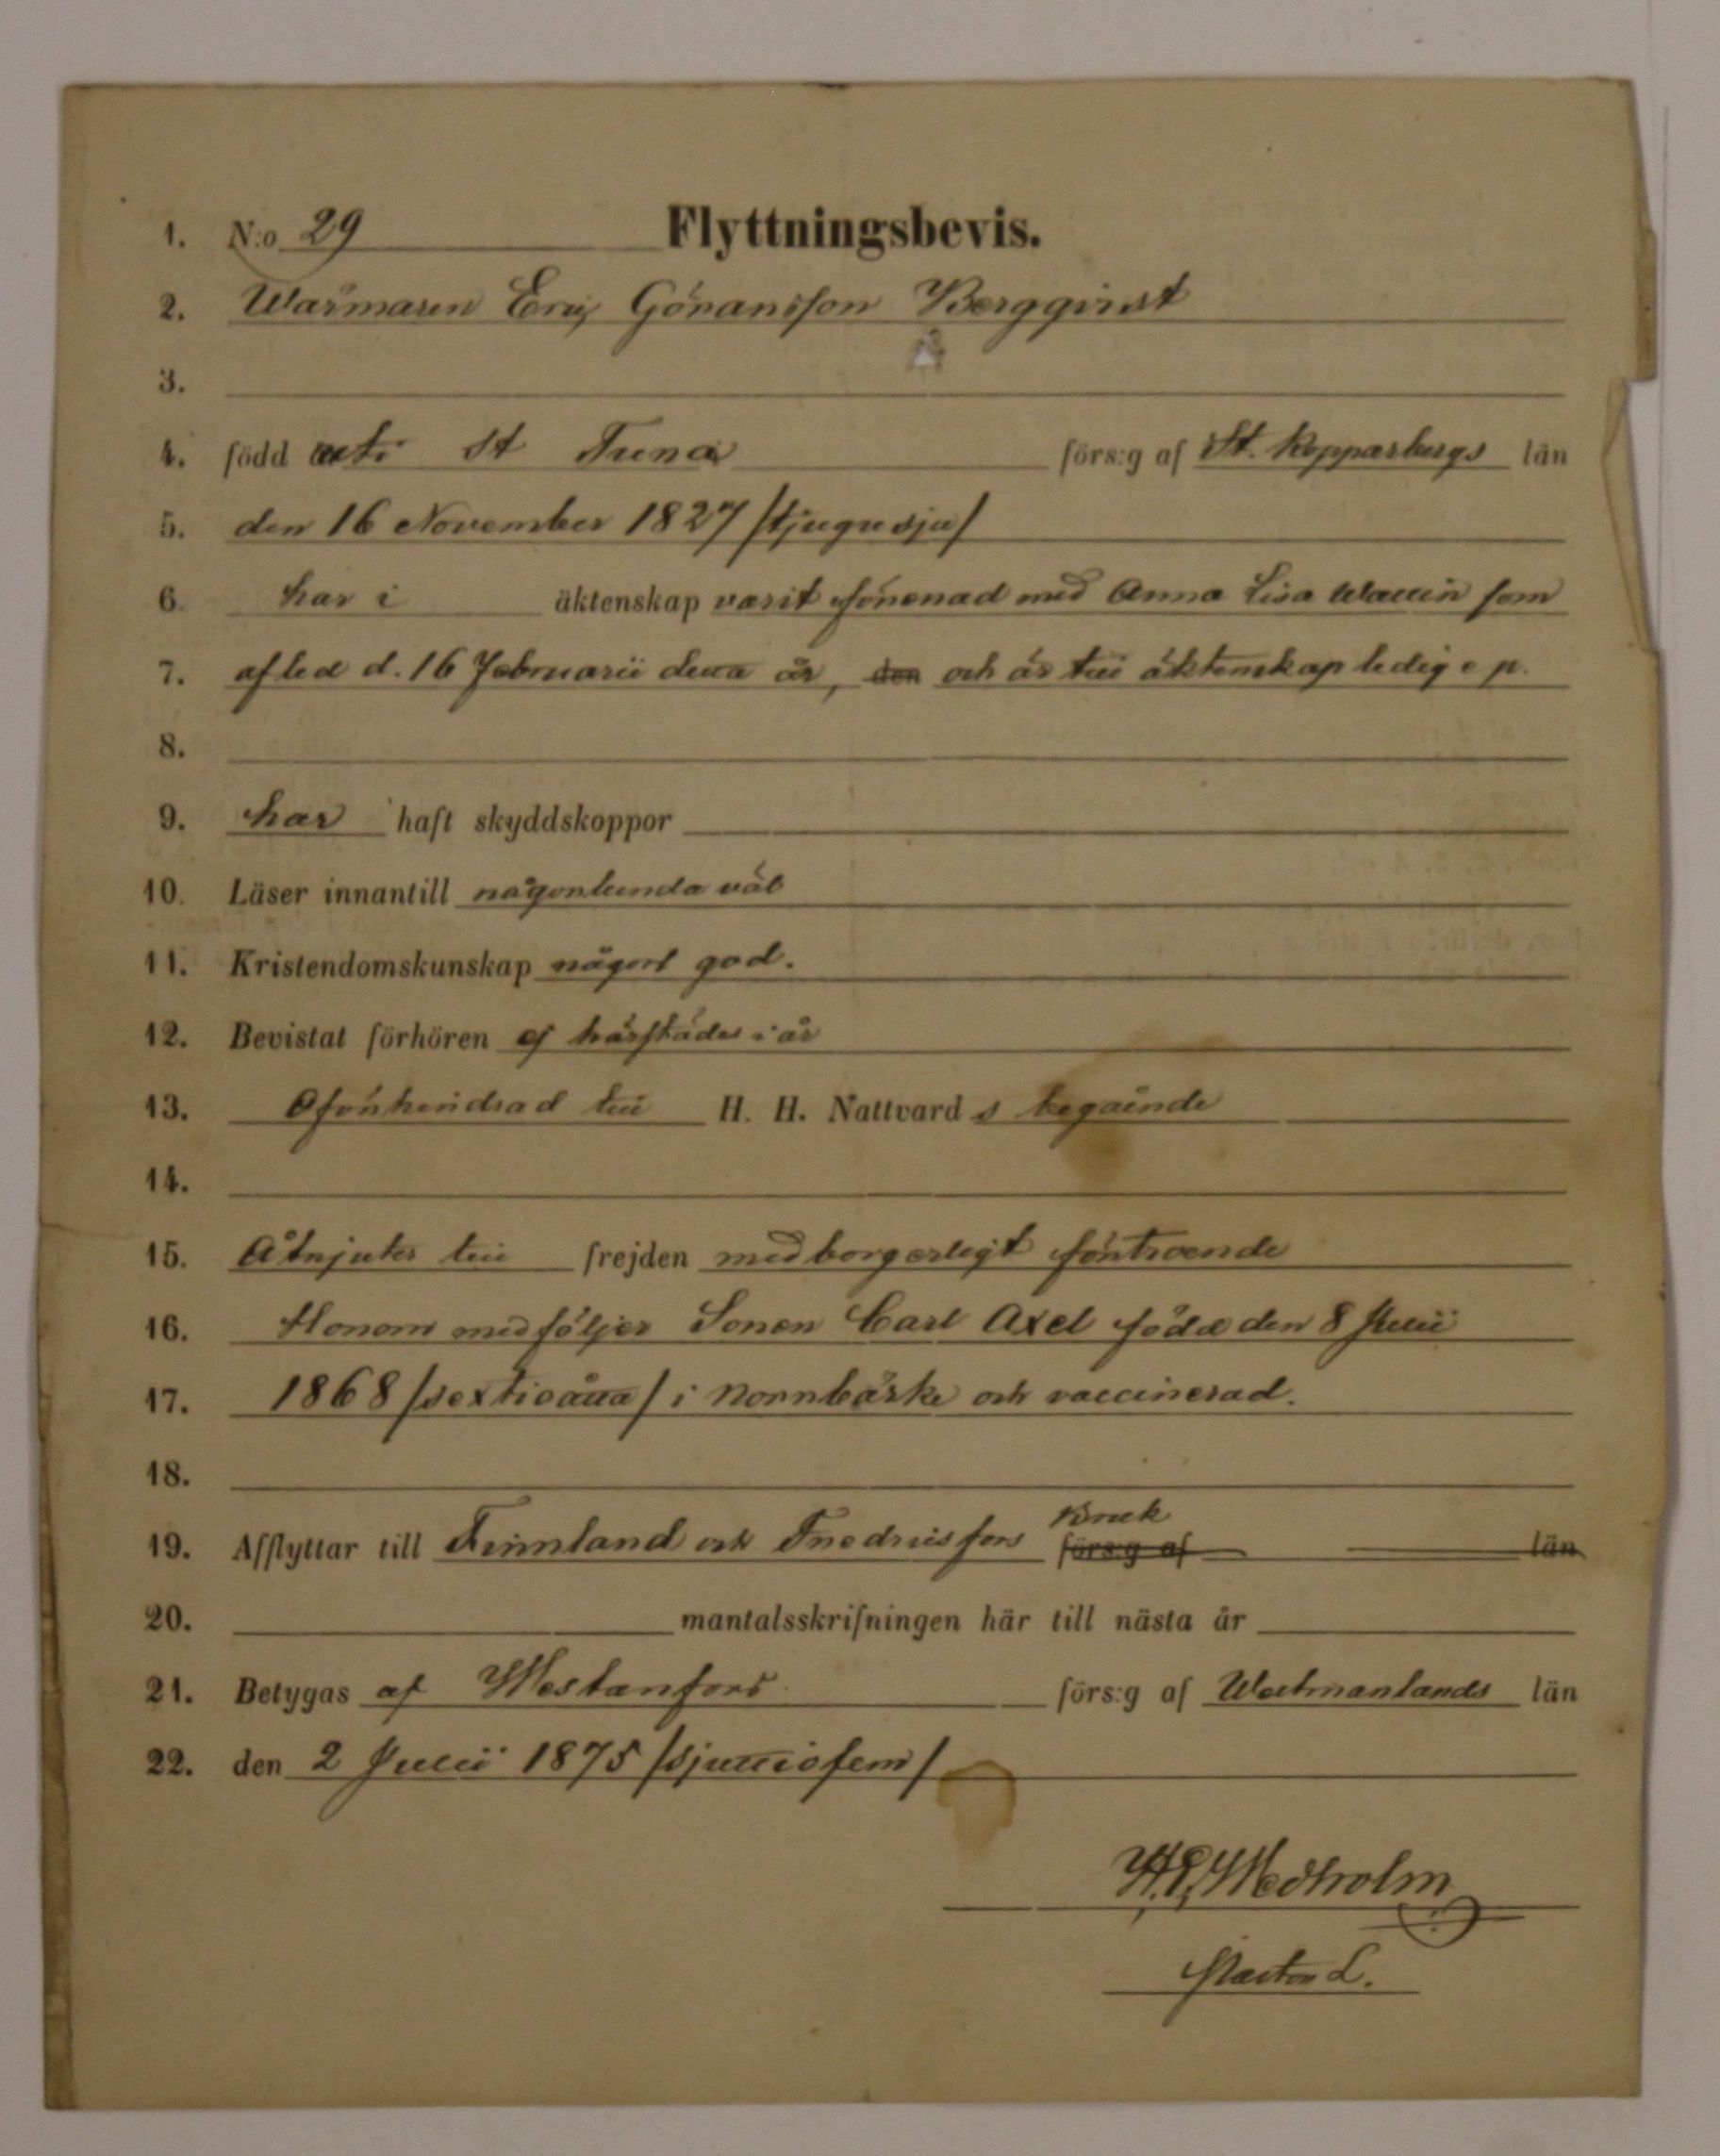 1. N:o 29 Flyttningsbevis.
2. Wärmaren Eric Göransson Bergqvist
3.
4. född uti St Tuna förs:g af St. Kopparbergs län
5. den 16 November 1827 /tjugusju/
6. har i äktenskap varit förenad med Anna Lisa Wallin som
7. afled d. 16 Februarii detta år, den och är till äktenskap ledig e p.
8.
9. har haft skyddskoppor
10. Läser innantill någorlunda väl
11. Kristendomskunskap något god.
12. Bevistat förhören ej härstädes i år
13. Oförhindrad till H. H. Nattvard s begående
14.
15. Åtnjuter till frejden medborgerligt förtroende
16. Honom medföljer Sonen Carl Axel född den 8 Julii
17. 1868 /sextioåtta/ i Norrbärke och vaccinerad.
18.
19. Afflyttar till Finnland och Fredriisfors Bruk förs:g af län
20. mantalsskrifningen här till nästa år
21. Betygas af Westanfors förs:g af Westmanlands län
22. den 2 Julii 1875 /sjuttiofem/
Wedholm
Pastor L.